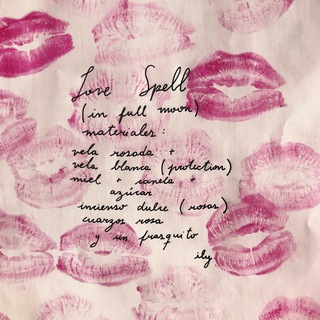 Love Spell
(in full moon)
materiales:
vela rosada +
vela blanca (protection)
miel + canela +
azúcar
incienso dulce (rosas)
cuarzos rosa
y un frasquito
+
ily